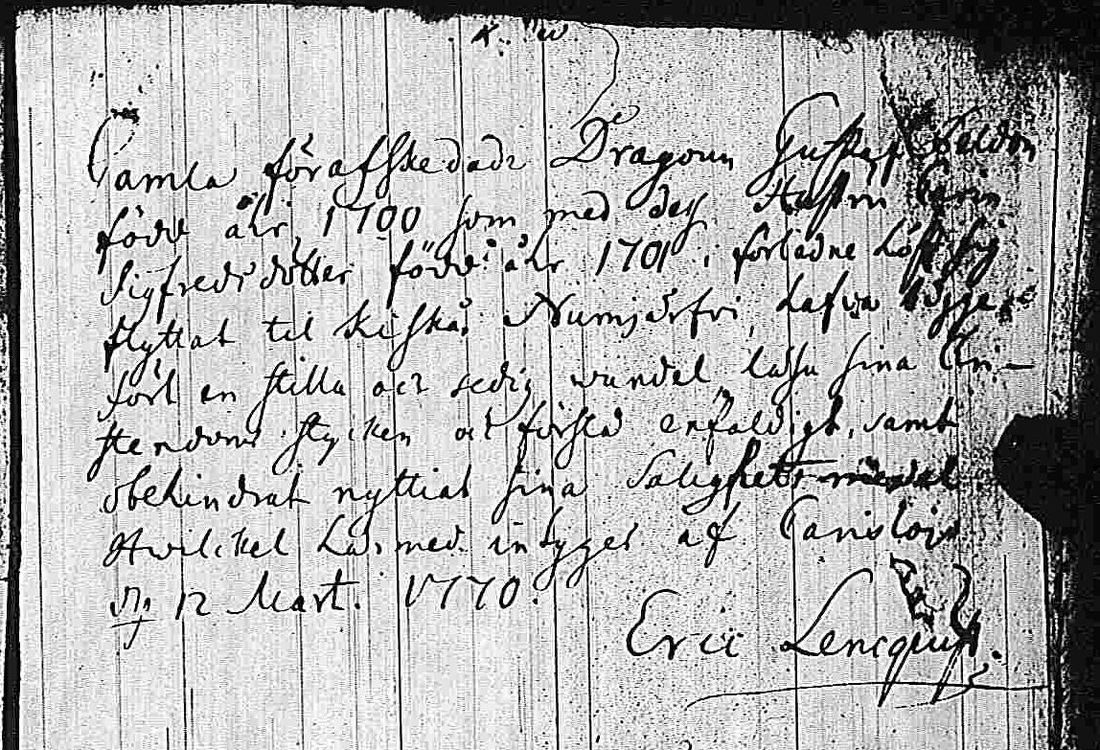 Gamla förafskedade Dragoun Gustaf Faldon
född åhr 1700 som med dess Hustru Carin
Sigfredsdotter född åhr 1701 i förledne Höst sig
flyttat til Kiskå Numjärfvi, hafva bägge
fört en stilla och sedig vandel, läsa sina Chri-
stendoms stycken och förstå enfaldigt, samt
obehindrat nyttiat sina Salighets medel
Hwilcket härmed intyges af Carislojo
d. 12 Mart. 1770.
Eric Lencquist.